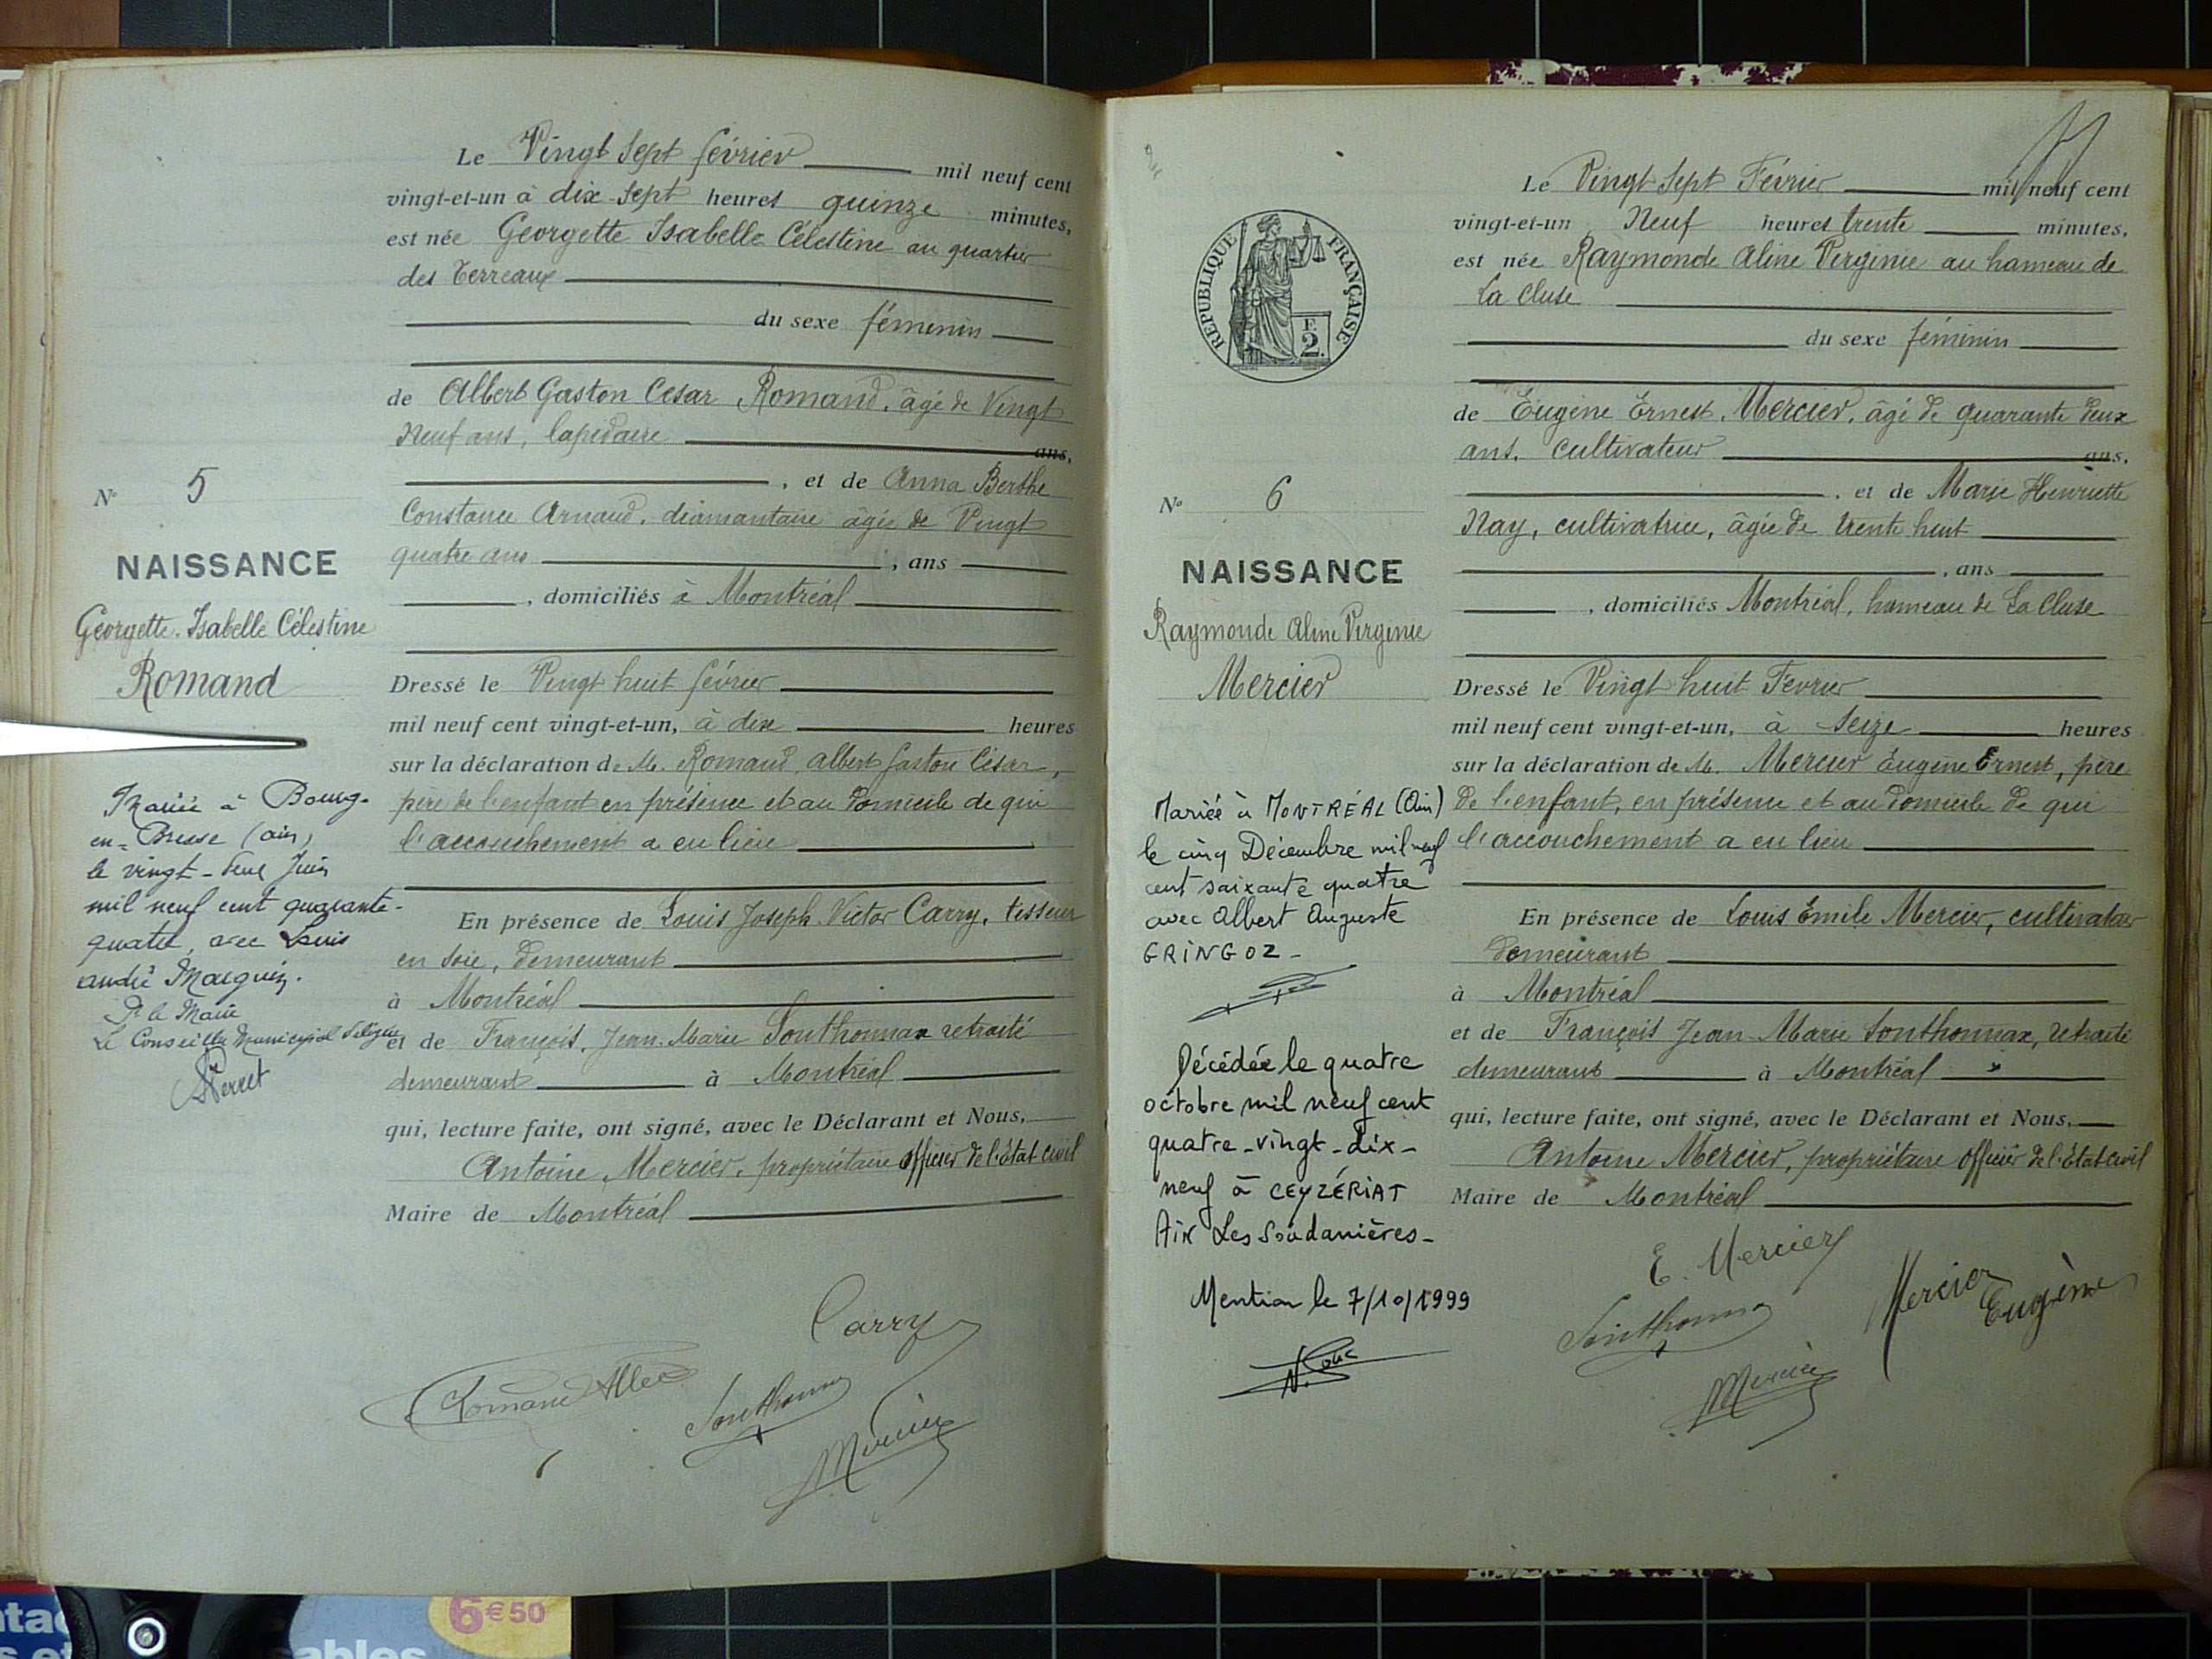 Le Vingt Sept février mil neuf cent
vingt-et-un à dix-sept heures quinze minutes,
est née Georgette Isabelle Célestine au quartier
des Terreaux
du sexe féminin
de Albert Gaston César Romand, âgé de Vingt
Neuf ans, lapidaire ans,
, et de Anna Berthe
Constance Arnaud, diamantaire âgée de Vingt
quatre ans , ans
, domiciliés à Montréal
N° 5
NAISSANCE
Georgette Isabelle Célestine
Romand
Dressé le Vingt huit février
mil neuf cent vingt-et-un, à dix heures
sur la déclaration de M. Romand, Albert Gaston César,
père de l'enfant en présence et au domicile de qui
l'accouchement a eu lieu
En présence de Louis Joseph Victor Carry, tisseur
en soie, demeurant
à Montréal
et de François, Jean-Marie Sonthonnax retraité
demeurant à Montréal
qui, lecture faite, ont signé, avec le Déclarant et Nous,
Antoine Mercier, propriétaire officier de l'État civil
Maire de Montréal
Mariée à Bourg-
en-Bresse (Ain)
le vingt-deux Juin
mil neuf cent quarante-
quatre, avec Louis
André
Pr le Maire
Le Conseiller Municipal délégué
Perret
Carry
Romand Albert
Sonthonnax
Mercier
RÉPUBLIQUE FRANÇAISE
F.
2.
Le Vingt Sept Février mil neuf cent
vingt-et-un, Neuf heures trente minutes,
est née Raymonde Aline Virginie au hameau de
La Cluse
du sexe féminin
de Eugène Ernest Mercier, âgé de quarante deux
ans, cultivateur ans,
, et de Marie Henriette
Nay, cultivatrice, âgée de trente huit
, ans
, domiciliés Montréal, hameau de La Cluse
N° 6
NAISSANCE
Raymonde Aline Virginie
Mercier
Dressé le Vingt huit Février
mil neuf cent vingt-et-un, à seize heures
sur la déclaration de M. Mercier Eugène Ernest, père
de l'enfant, en présence et au domicile de qui
l'accouchement a eu lieu
En présence de Louis Emile Mercier, cultivateur
demeurant
à Montréal
et de François Jean-Marie Sonthonnax, retraité
demeurant à Montréal
qui, lecture faite, ont signé, avec le Déclarant et Nous,
Antoine Mercier, propriétaire officier de l'État civil
Maire de Montréal
Mariée à MONTRÉAL (Ain)
le cinq Décembre mil neuf
cent soixante quatre
avec Albert Auguste
GRINGOZ -
Décédée le quatre
octobre mil neuf cent
quatre-vingt-dix-
neuf à CEYZÉRIAT
Ain Les Soudanières-
Mention le 7/10/1999
E. Mercier
Mercier
Eugène
Sonthonnax
Mercier
6€50
ables